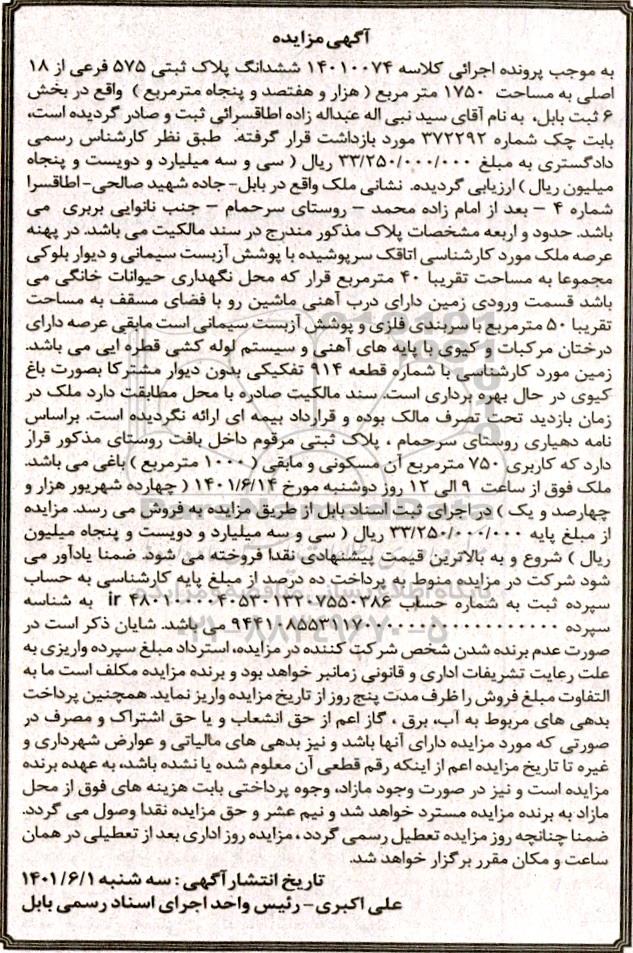 آگهی مزایده
به موجب پرونده اجرائی کلاسه ۱۴۰۱۰۰۷۴ ششدانگ پلاک ثبتی ۵۷۵ فرعی از ۱۸
اصلی به مساحت ۱۷۵۰ متر مربع ( هزار و هفتصد و پنجاه مترمربع ) واقع در بخش
۶ ثبت بابل، به نام آقای سید نبی اله عبداله زاده اطاقسرائی ثبت و صادر گردیده است،
بابت چک شماره ۳۷۲۲۹۲ مورد بازداشت قرار گرفته. طبق نظر کارشناس رسمی
دادگستری به مبلغ ۳۳/۲۵۰/۰۰۰/۰۰۰ ریال ( سی و سه میلیارد و دویست و پنجاه
میلیون ریال ) ارزیابی گردیده. نشانی ملک واقع در بابل- جاده شهید صالحی- اطاقسرا
شماره ۴ – بعد از امام زاده محمد – روستای سرحمام – جنب نانوایی بربری می
باشد. حدود و اربعه مشخصات پلاک مذکور مندرج در سند مالکیت می باشد. در پهنه
عرصه ملک مورد کارشناسی اتاقک سرپوشیده با پوشش آزبست سیمانی و دیوار بلوکی
مجموعا به مساحت تقریبا ۴۰ مترمربع قرار که محل نگهداری حیوانات خانگی می
باشد قسمت ورودی زمین دارای درب آهنی ماشین رو با فضای مسقف به مساحت
تقریبا ۵۰ مترمربع با سربندی فلزی و پوشش آزبست سیمانی است مابقی عرصه دارای
درختان مرکبات و کیوی با پایه های آهنی و سیستم لوله کشی قطره ایی می باشد.
زمین مورد کارشناسی با شماره قطعه ۹۱۴ تفکیکی بدون دیوار مشترکا بصورت باغ
کیوی در حال بهره برداری است. سند مالکیت صادره با محل مطابقت دارد ملک در
زمان بازدید تحت تصرف مالک بوده و قرارداد بیمه ای ارائه نگردیده است. براساس
نامه دهیاری روستای سرحمام ، پلاک ثبتی مرقوم داخل بافت روستای مذکور قرار
دارد که کاربری ۷۵۰ مترمربع آن مسکونی و مابقی ( ۱۰۰۰ مترمربع ) باغی می باشد.
ملک فوق از ساعت ۹ الی ۱۲ روز دوشنبه مورخ ۱۴۰۱/۶/۱۴ ( چهارده شهریور هزار و
چهارصد و یک ) در اجرای ثبت اسناد بابل از طریق مزایده به فروش می رسد. مزایده
از مبلغ پایه ۳۳/۲۵۰/۰۰۰/۰۰۰ ریال ( سی و سه میلیارد و دویست و پنجاه میلیون
ریال ) شروع و به بالاترین قیمت پیشنهادی نقدا فروخته می شود. ضمنا یادآور می
شود شرکت در مزایده منوط به پرداخت ده درصد از مبلغ پایه کارشناسی به حساب
سپرده ثبت به شماره حساب ir به شناسه
سپرده می باشد. شایان ذکر است در
صورت عدم برنده شدن شخص شرکت کننده در مزایده، استرداد مبلغ سپرده واریزی به
علت رعایت تشریفات اداری و قانونی زمانبر خواهد بود و برنده مزایده مکلف است ما به
التفاوت مبلغ فروش را ظرف مدت پنج روز از تاریخ مزایده واریز نماید. همچنین پرداخت
بدهی های مربوط به آب، برق ، گاز اعم از حق انشعاب و یا حق اشتراک و مصرف در
صورتی که مورد مزایده دارای آنها باشد و نیز بدهی های مالیاتی و عوارض شهرداری و
غیره تا تاریخ مزایده اعم از اینکه رقم قطعی آن معلوم شده یا نشده باشد، به عهده برنده
مزایده است و نیز در صورت وجود مازاد، وجوه پرداختی بابت هزینه های فوق از محل
مازاد به برنده مزایده مسترد خواهد شد و نیم عشر و حق مزایده نقدا وصول می گردد.
ضمنا چنانچه روز مزایده تعطیل رسمی گردد ، مزایده روز اداری بعد از تعطیلی در همان
ساعت و مکان مقرر برگزار خواهد شد.
تاریخ انتشار آگهی : سه شنبه ۱۴۰۱/۶/۱
علی اکبری – رئیس واحد اجرای اسناد رسمی بابل